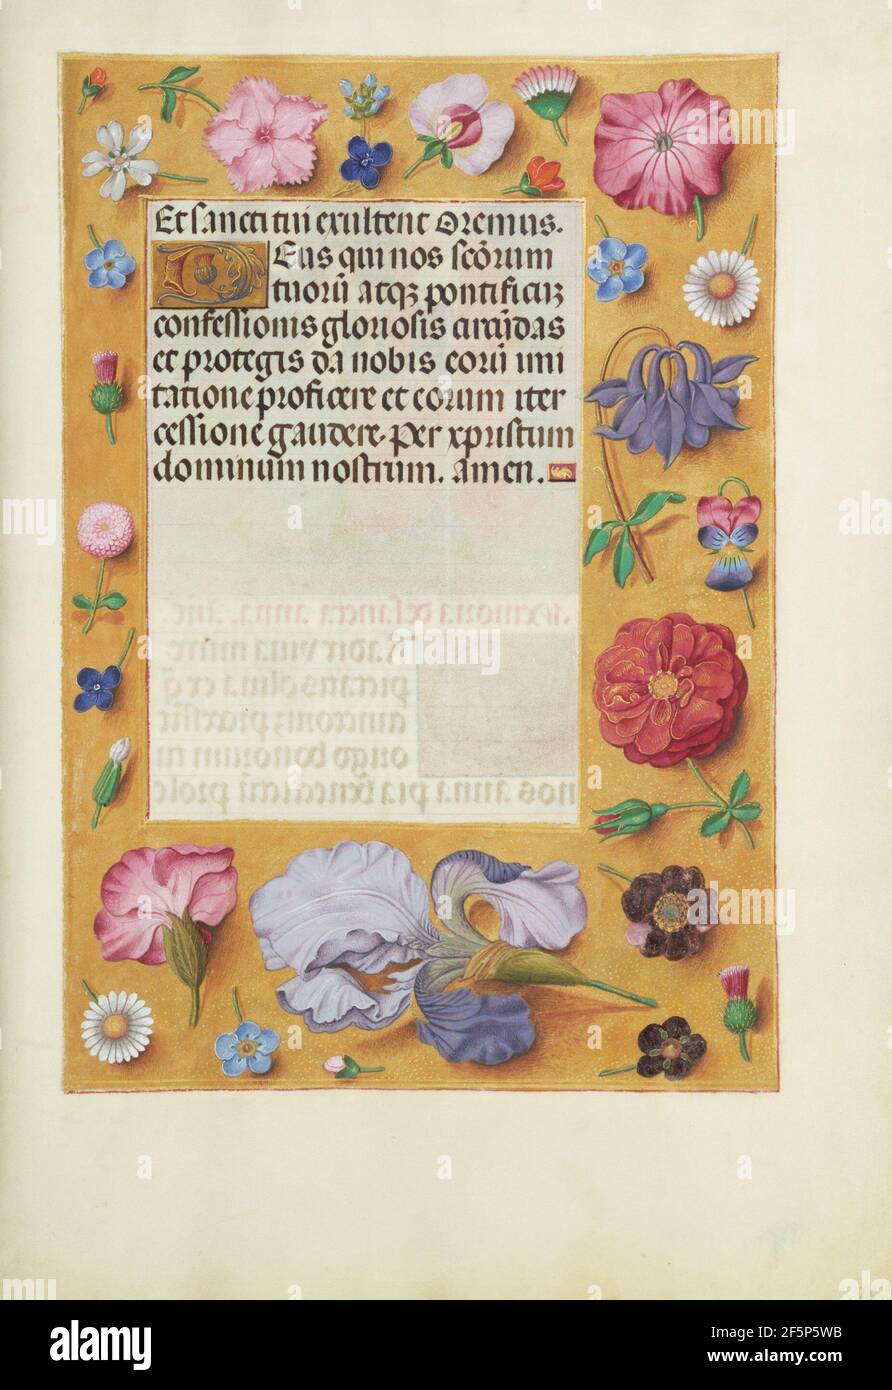 Et sancti tui exultent Oremus.
Deus qui nos scōrum
tuorū atqꝫ pontificūꝫ
confessionis gloriosis circūdas
et protegis da nobis eorū imi
tatione proficere et eorum iter
cessione gaudere. Per xpristum
dominum nostrum. amen.
alamy
Image ID: 2F5P5WB
www.alamy.com